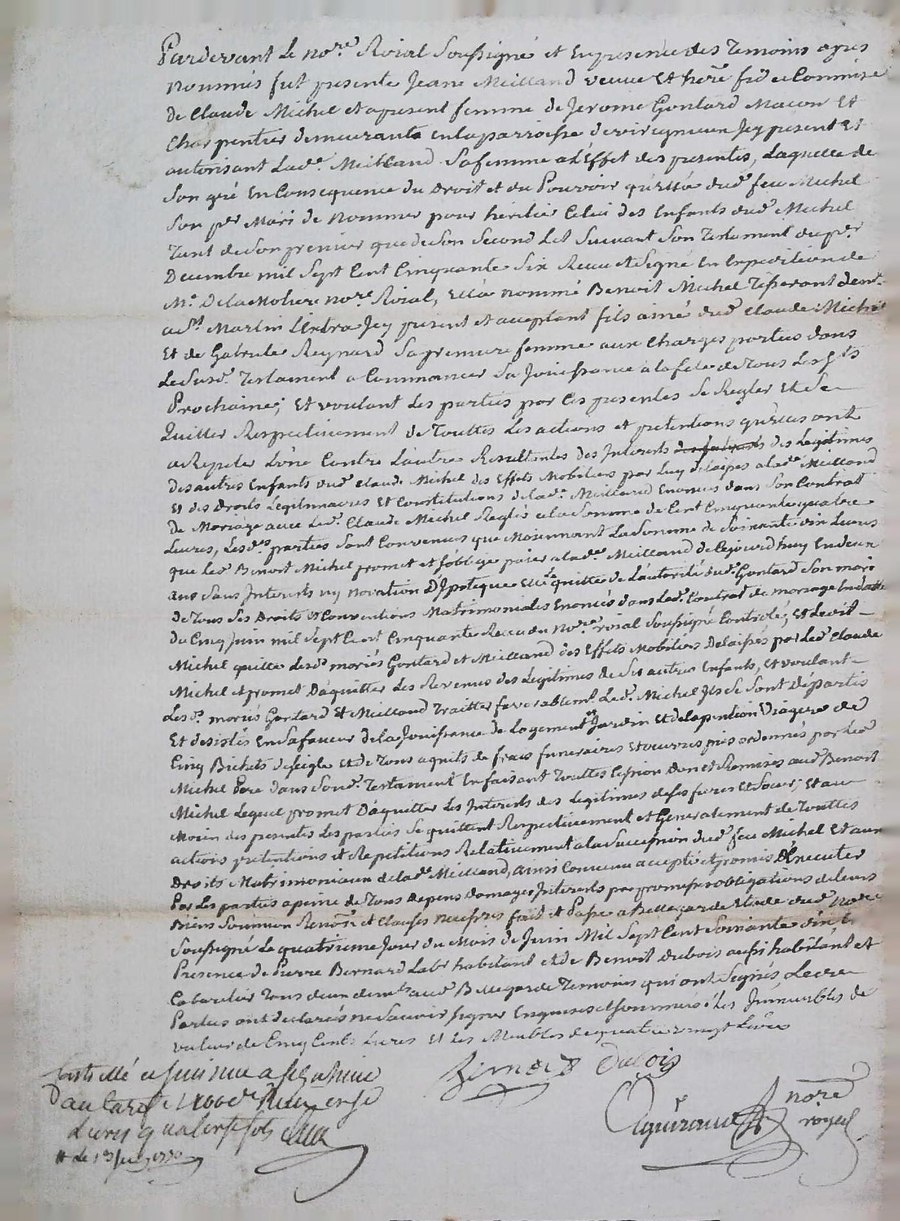 Pardevant le no.re Roial Soussigné et En presence des Temoins apres
nommés fut presente Jeane Meilland veuve Et here fideiCommise
de Claude Michel et apresent femme de Jerome Gontard Macon Et
Charpentier demeurante en la parroisse de virigneux Jcy present Et
autorisant Lad.e Meilland Sa femme a L'Effet des presentes, Laquelle de
Son gré En Consequence du Droit et du Pouvoir qu'Ella dud. feu Michel
Son p.er Mari de nommer pour héritier Celui des Enfants dud. Michel
Tant de Son premier que de Son Second Lit Suivant Son Testament du p.er
Decembre mil Sept Cent Cinquante Six Receu et Signé En Expedition de
M.e Delanoliere no.re Roial, Ella nommé Benoit Michel Tisserant dem.t
a S.t Martin Lextra Jcy present et acceptant fils ainé dud. Claude Michel
Et de Gabrielle Reynard Sa premiere femme aux Charges portées dans
Le Susd. Testament a Commancer Sa Jouissance a la fete de Tous Les S.ts
Prochaine; Et voulant Les parties par Ces presentes Se Regler Et Se
Quitter Respectivement de Touttes Les actions et pretentions qu'elles ont
a Repeter L'une Contre L'autre Resultentes des Interets des Legitimes
des autres Enfants dud. Claude Michel des Effets Mobiliers par Luy delaissés a lad.e Meilland
Et des Droits Legitimaires Et Constitutions de lad.e Meilland Enoncés dans Son Contrat
de Mariage avec Led. Claude Michel Reglés a la Somme de Cent Cinquante quatre
Livres, Lesd.es parties Sont Convenues que Moiennant La Somme de Soixante dix Livres
que led. Benoit Michel promet et s'oblige paier a lad.e Meilland de Cejourd'huy En deux
ans Sans Interets ny novation D'Ipoteque Elle quitte de L'autorité dud. Gontard Son mari
de Tous Ses Droits Et Conventions Matrimoniales Enoncés dans Led. Contrat de mariage En datte
du Cinq Juin mil Sept Cent Cinquante Receu du No.re roial Soussigné Controlé, Et ledit
Michel quitte lesd. mariés Gontard et Meilland des Effets Mobiliers Delaissés par Led. Claude
Michel et promet D'aquitter Les Revenus des Legitimes de Ses autres Enfants, Et voulant
Les d. mariés Gontard Et Meilland Traitter favorablemt Led. Michel Jls Se Sont Departis
Et desistés En Sa faveur de la Jouissance de Logement Jardin et de la pention Viagere de
Cinq Bichets de seigle et de Tous aquits de frais funeraires et oeuvres pies ordonnés par Led.
Michel Pere dans Sond. Testament En faisant Touttes Cession Don et Remises aud. Benoit
Michel Lequel promet D'aquitter Les Interets des Legitimes de ses freres et Soeurs; Et au
Moien des presentes Les parties Se quittent Respectivement et Generalement de Touttes
actions pretentions et Repetitions Relativement a la Succession dud. feu Michel Et aux
Droits Matrimoniaux de lad.e Meilland, ainsi Convenu accepté et promis D'Executer
Par Les parties a peine de Tous Depens Domages Interets par promesse obligations de leurs
Biens Soumission Renon.s et Clauses necess.res fait et Passé a Bellegarde Etude dud. No.re
Soussigné Le quatrieme Jour du Mois de Juin Mil Sept Cent Soixante dix En
Presence de Pierre Bernard Lab.r habitant et de Benoit Dubois aussi habitant et
Cabartier Tous deux dem.ts aud. Bellegarde Temoins qui ont Signés Les
Parties ont declarés ne Savoir Signer Enquises et Sommées / Les Immeubles de
valeur de Cinq Cents Livres Et Les Meubles de quatre vingt Livres
Bernard Dubois
Controllé
Livres quatorze sols
no.re
royal